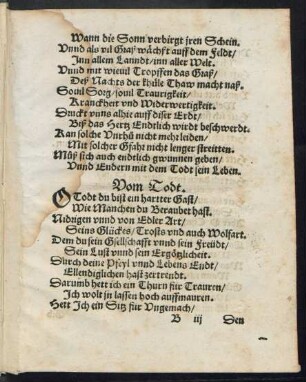 Wann die Sonn verbirgt jren Schein.
Vnnd als vil Graß wächßt auff dem Feldt/
Jnn allem Lanndt/ inn aller Welt.
Vnnd mit wieuil Tropffen das Graß/
Deß Nachts der khüle Thaw macht naß.
Souil Sorg/ souil Traurigkeit/
Kranckheit vnd Widerwertigkeit.
Druckt vnns alhie auff diser Erdt/
Biß das Hertz Endtlich wirdt beschwerdt.
Kan solche Vnrhů nicht mehr leiden/
Mit solcher Gfahr nicht lenger streitten.
Můß sich auch endtlich gwunnen geben/
Vnnd Endern mit dem Todt sein Leben.
Vom Todt.
O Todt du bist ein hartter Gast/
Wie Manchen du Beraubet hast.
Nidrigen vnnd von Edler Art/
Seins Glückes/ Trosts vnd auch Wolfart.
Dem du sein Gsellschafft vnnd sein Freüdt/
Sein Lust vnnd sein Ergötzligkeit.
Durch deine Pfeyl vnnd Lebens Endt/
Ellendiglichen hast zertrendt.
Darumb hett ich ein Thurn für Trauren/
Jch wolt jn lassen hoch auffmauren.
Hett Jch ein Sitz für Vngemach/
B iij Den